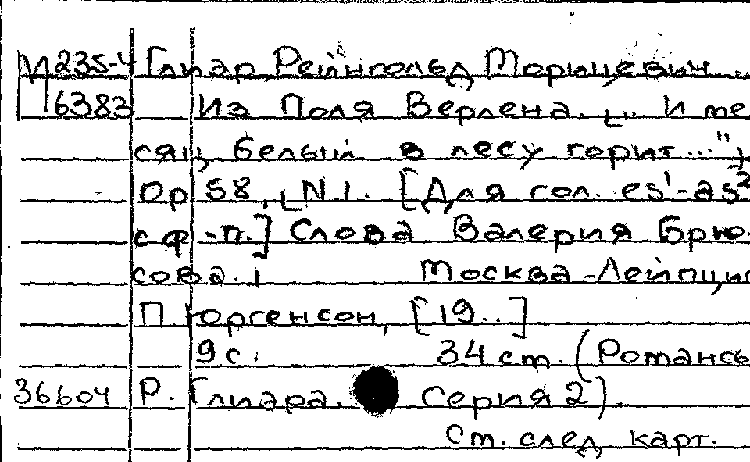 М 235-4 Глиэр, Рейнгольд Морицевич.
П 6383 Из Поля Верлена. "И ме
сяц белый в лесу горит...",
Op 58, N 1. [Для гол. es¹-as²
с ф.-п.] Слова Валерия Брю-
сова. Москва-Лейпциг
П. Юргенсон, [19..]
9 с. 34 см. (Романсы
36604 Р. Глиэра. Серия 2).
См. след. карт.